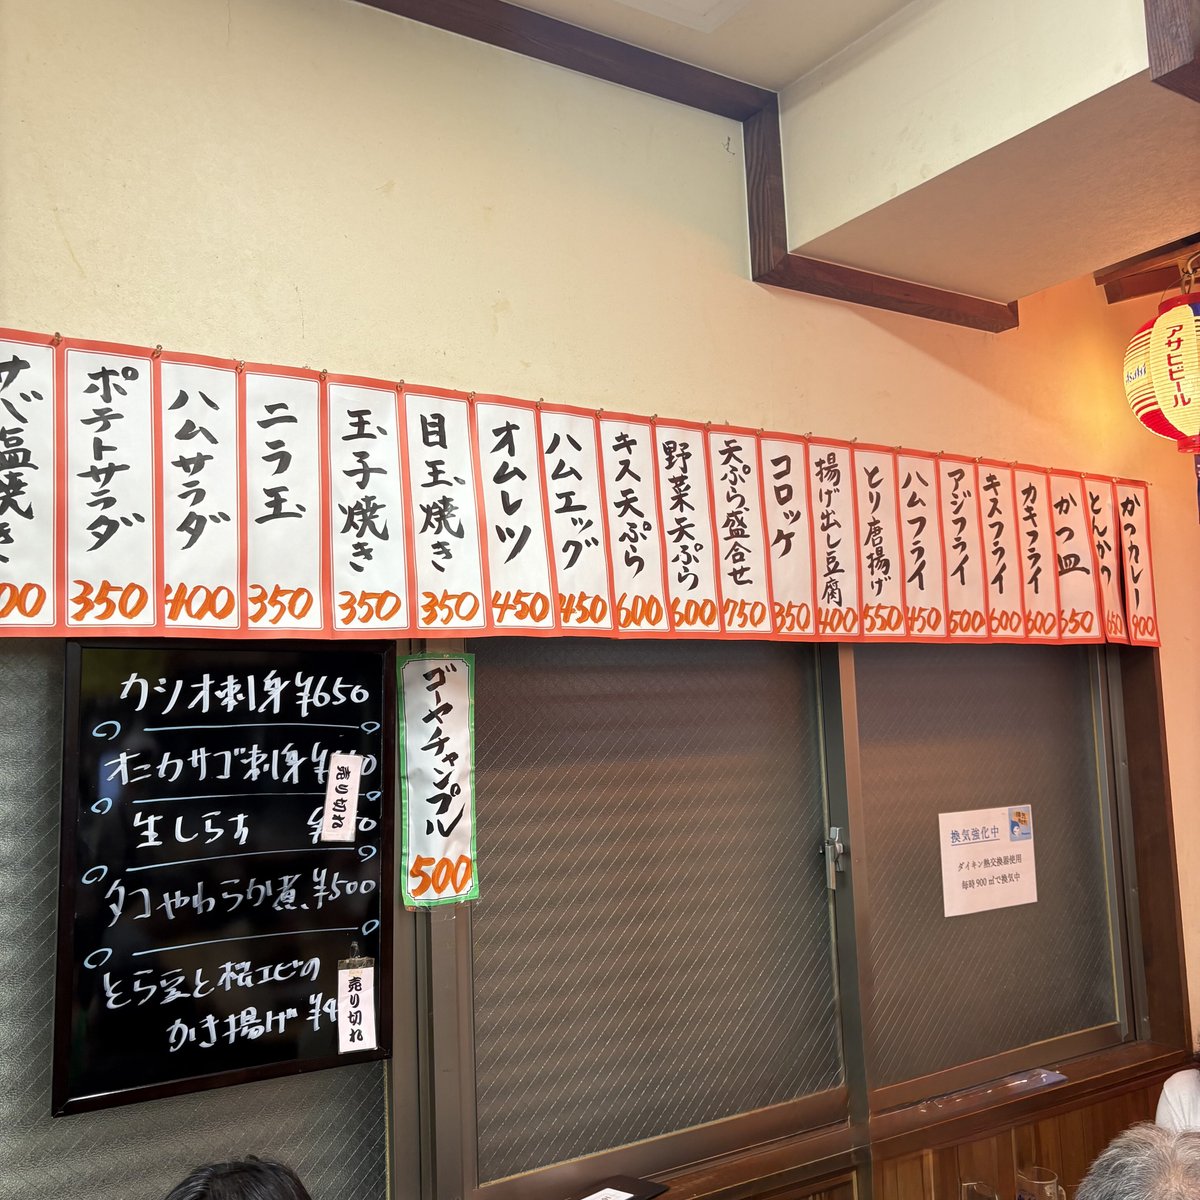 かつカレー
900
とんかつ
650
かつ皿
650
カキフライ
600
キスフライ
600
アジフライ
500
ハムフライ
450
とり唐揚げ
550
揚げ出し豆腐
400
コロッケ
350
天ぷら盛合せ
750
野菜天ぷら
600
キス天ぷら
600
ハムエッグ
450
オムレツ
450
目玉焼き
350
玉子焼き
350
ニラ玉
350
ハムサラダ
400
ポテトサラダ
350
サバ塩焼き
00
カツオ刺身¥650
オニカサゴ刺身¥
売り切れ
生しらす ¥
タコやわらか煮¥500
とら豆と桜エビの
かき揚げ¥4
売り切れ
ゴーヤチャンプル
500
換気強化中
ダイキン熱交換器使用
毎時900㎥で換気中
アサヒビール
Asahi